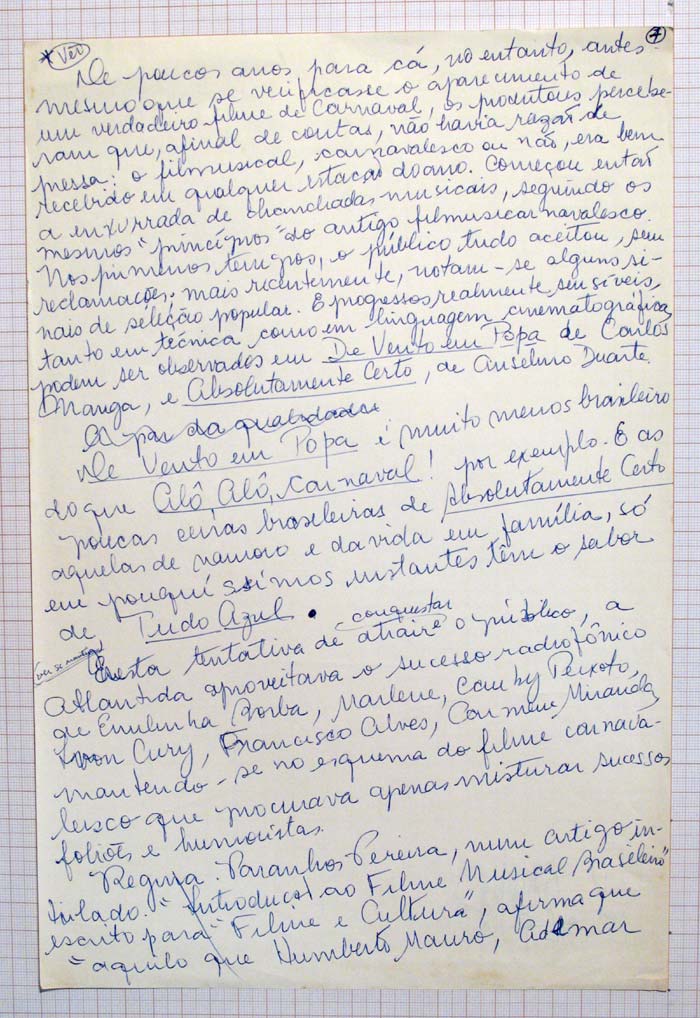 * Ver 7
De poucos anos para cá, no entanto, antes
mesmo que se verificasse o aparecimento de
um verdadeiro filme de Carnaval, os produtores percebe-
ram que, afinal de contas, não havia razão de
pressa: o filmusical, carnavalesco ou não, era bem
recebido em qualquer estação do ano. Começou então
a enxurrada de chanchadas musicais, seguindo os
mesmos "princípios" do antigo filmusicarnavalesco.
Nos primeiros tempos, o público tudo aceitou, sem
reclamações; mais recentemente, notam-se alguns si-
nais de seleção popular. E progressos realmente sensíveis,
tanto em técnica como em linguagem cinematográfica,
podem ser observados em De Vento em Popa de Carlos
Manga, e Absolutamente Certo, de Anselmo Duarte.
A par da qualidade
De Vento em Popa é muito menos brasileiro
do que Alô, Alô, Carnaval! por exemplo. E as
poucas cenas brasileiras de Absolutamente Certo
aquelas de namoro e da vida em família, só
em pouquíssimos instantes têm o sabor
de Tudo Azul.
conquistar
Nesta tentativa de atrair o público, a
Atlantida aproveitava o sucesso radiofônico
de Emilinha Borba, Marlene, Cauby Peixoto,
Ivon Cury, Francisco Alves, Carmem Miranda,
mantendo-se no esquema do filme carnava-
lesco que procurava apenas misturar sucessos
foliões e humoristas.
Regina Paranhos Pereira, num artigo in-
titulado "Introducos ao Filme Musical Brasileiro"
escrito para "Filme e Cultura", afirma que
"aquilo que Humberto Mauro, Ademar